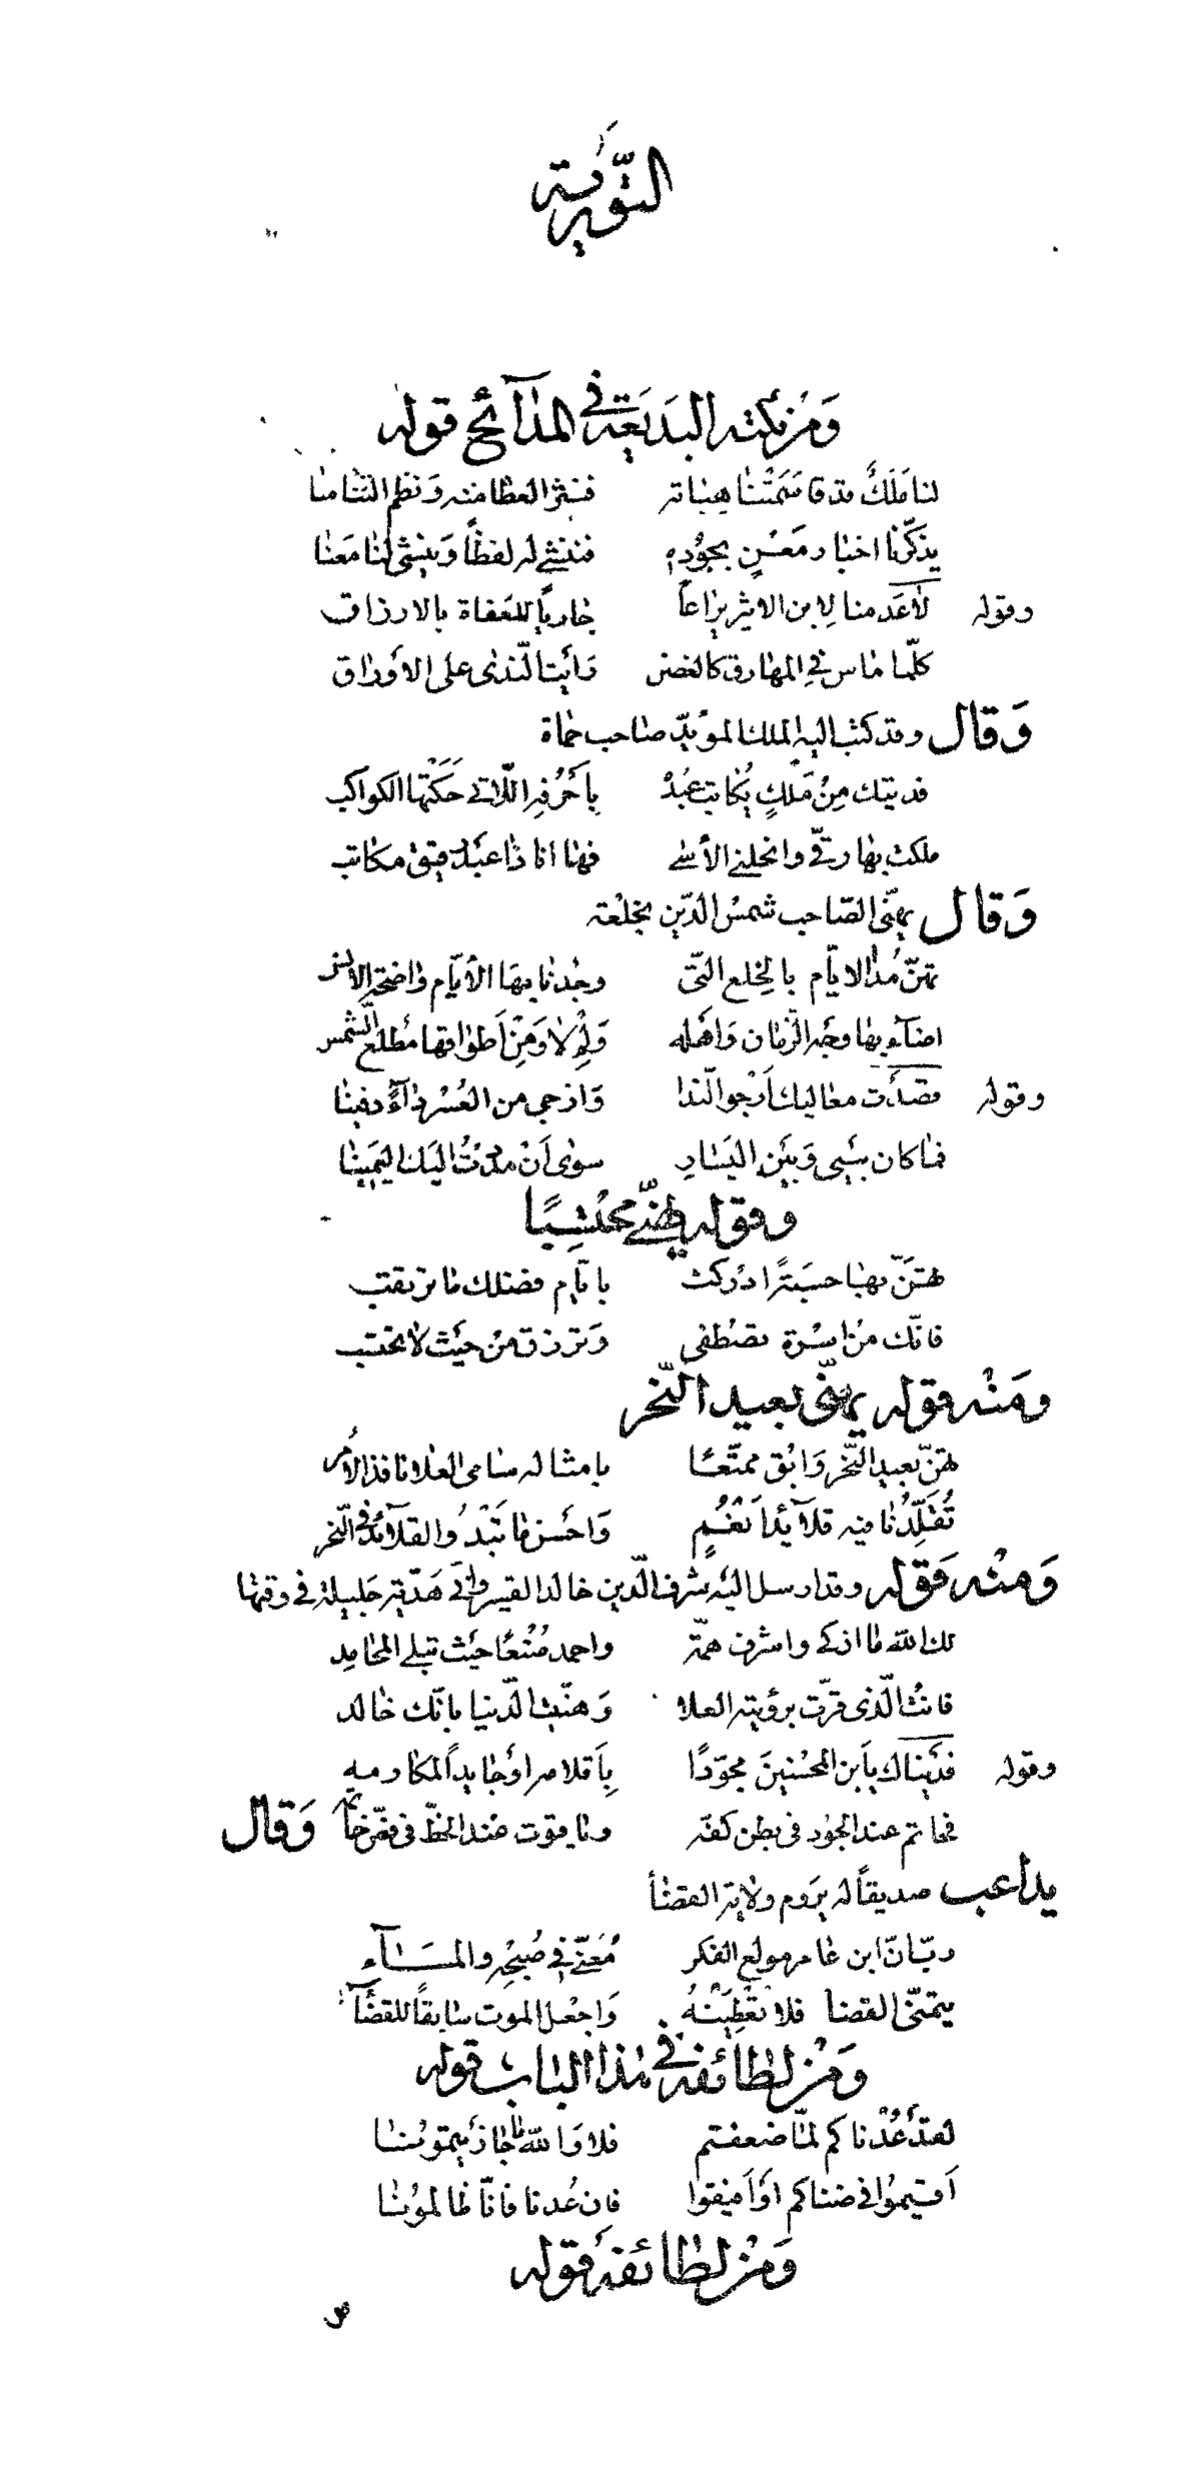 التَّورية
وَمن نكته البَديعَة في المدآئح قوله
لنا مَلكٌ قد قاسَمَتْنا هباته فننثر العطا منه وَنظم الثنا منا
يذكّرنا اخبار مَعْنٍ بجُودِه فننشي له لفظاً وَينشي لنا مَعنا
وقوله لاعَدمنا لِابن الاثير يراعاً جارياً للعَفاة بالارزاق
كلّما ماس في المهارق كالغصن رَأيتَ النّدى على الأوراق
وَقال وقد كتب اليه الملك المؤيّد صاحب حماة
فديتك مِنْ مَلكٍ يُكاتبُ عبْدهُ بِأحرُفِه اللّاتي حَكَتْها الكواكب
ملكت بها رقّي وانحلني الأسَى فها انا ذا عَبدٌ رقيق مكاتب
وَقال يهنّي الصّاحب شمسُ الدّين بخلْعة
تهنّ مُدا الايّام بالخِلع التّي وجدنا بها الأيّام واضحة الانس
اضآء بها وجَه الزّمان وَاهله وَلِمْ لا وَمِنْ اَطواقها مُطلع الشّمس
وقوله قصَدت معاليك أرْجو النّدا وَازجي من العُسْر دآءً دفينا
فما كان بَيني وَبَين اليَسارِ سوى اَنْ مدَدْتُ اليَك اليَمينا
وقوله يهنّي محْتسِبًا
تهنَّ بها حسبَةً ادركت بايّام فضلك ما ترتقب
فانّك من اسْرة تصْطفى وَترزق منْ حيَث لا تحتسب
ومَنْه قوله يهنّى بعيد النّحر
تهنّ بعيد النّحر وَابْق ممتّعًا بامثاله سامى العلا نافذ الأمر
تُقلّدُنا فيه قلآئداَ نعُمٍ وَاحسَن ما تَبْدُو القلآئدُ في النّحر
وَمنْه قَوله وقد ارسل اليْه شرف الدّين خالد القيسراني هَدّية جَليلة في وقتها
لك الله ما اذكى واشرف همّة واحمد صُنعًا حيَث تبلى المحامِد
فانت الّذي قرّت برؤيته العلا وَهنّيت الدّنيا بانّك خالد
وقوله فدَيناك يَا بن المحْسنينَ مجوّدًا بِاَقلامه اوجايداً لمكارمه
فحاتم عند الجوُد في بطن كفّه وياقوت عْند الخطّ في فصّ خاتمه وَقال
يداعب صديقاً له يرَوم ولاية القضاأ
ربّ انّ ابن عامر مولع الفكر مُعَنّي في صُبْحِه والمسَــآءِ
يتمنّى القضا فلا تعْطِيَنْهُ وَاجْعل الموت سَابقاً للقضآء
وَمنْ لطائفه في هذا الباب قوله
لعتدْ عُدْناكم لمّا ضعفتم فلا وَالله ما جازَيتمونــا
اَقيمُوا في ضناكم اوْ اَفيقوا فان عُدنا فانّا ظالموُنــا
وَمنْ لطائفه قوله